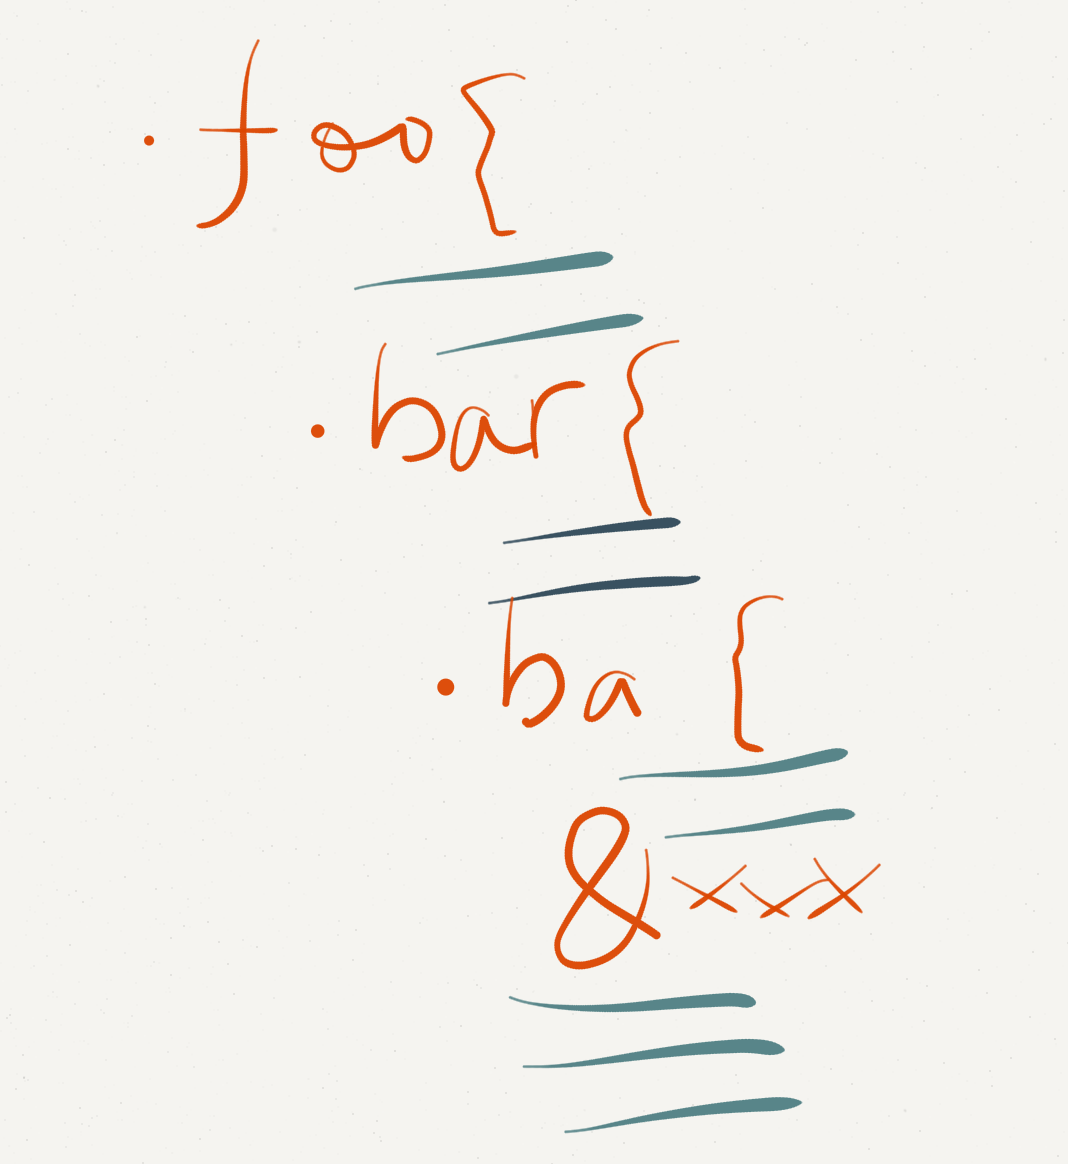 .foo{
.bar{
.ba {
&xxx